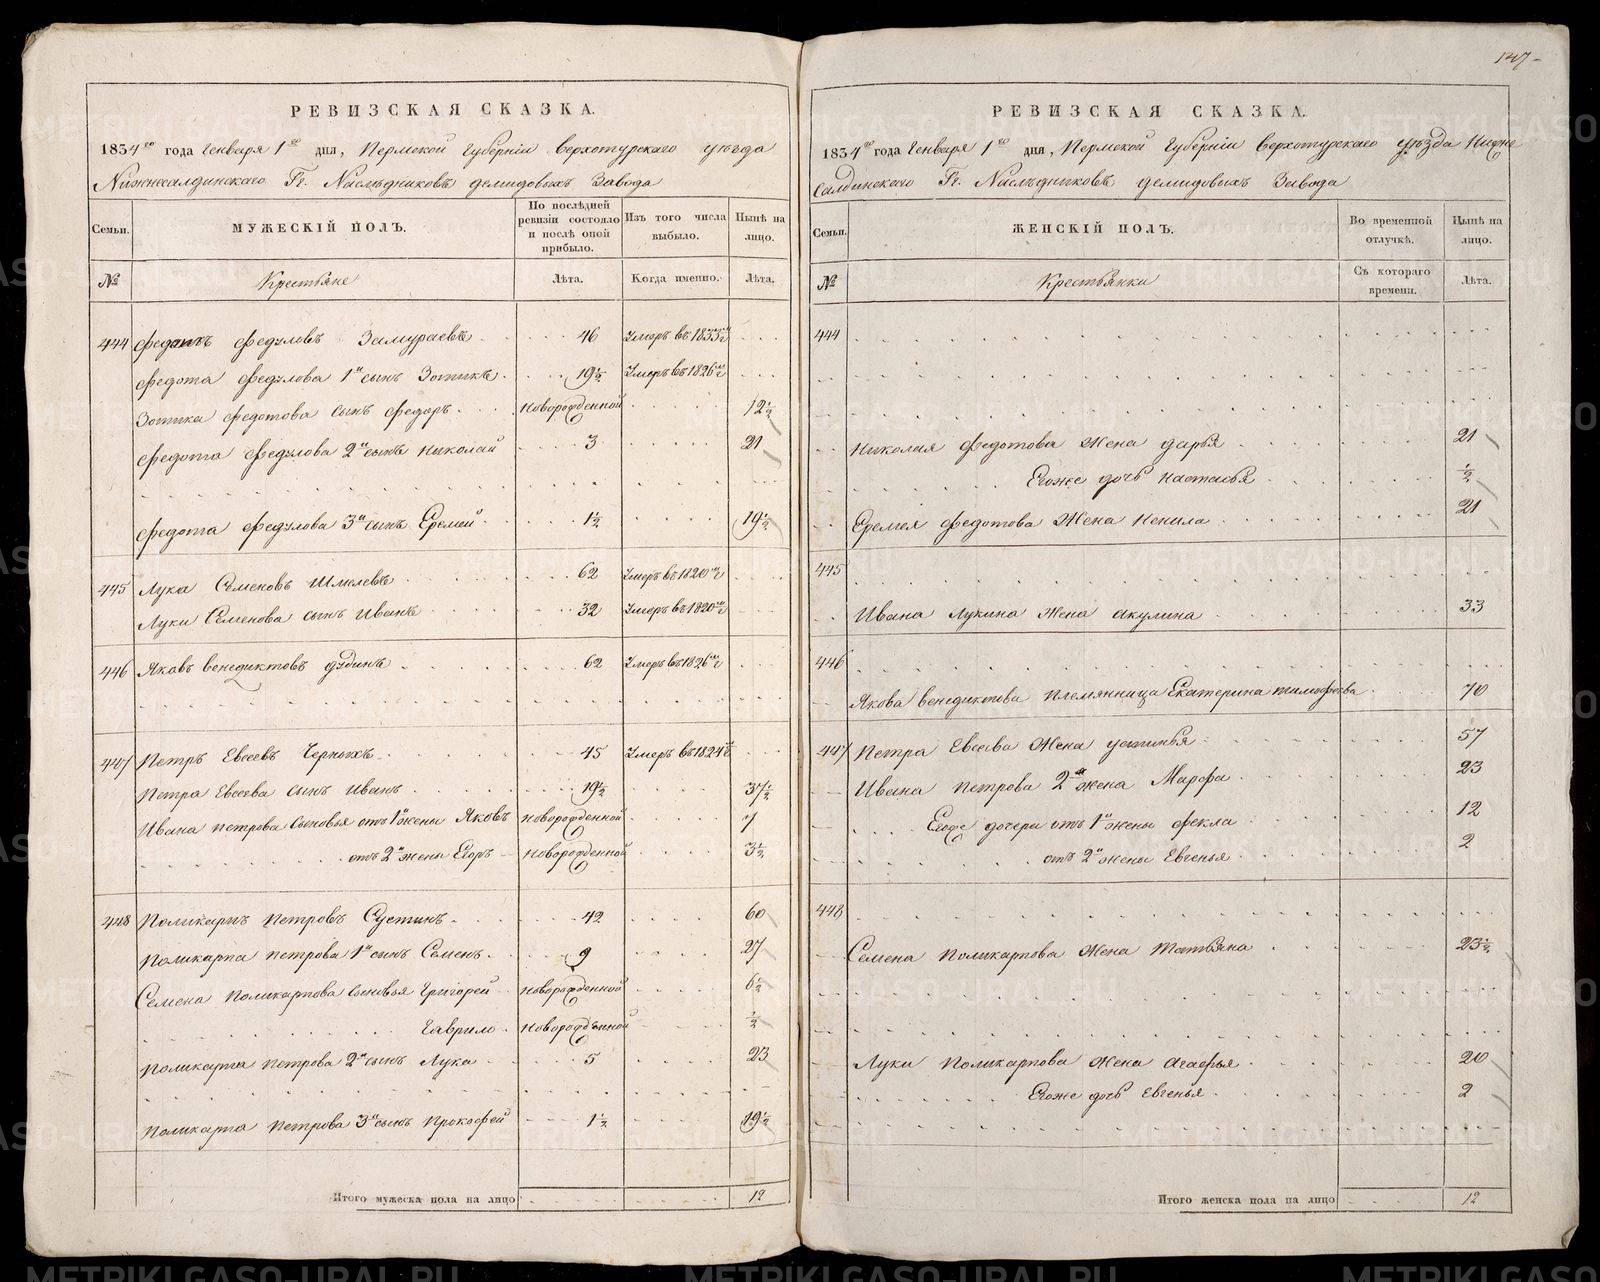 147
РЕВИЗСКАЯ СКАЗКА.
1834го года Генваря 1го дня, Пермской Губерніи Верхотурскаго уѣзда
Нижнесалдинскаго Гг. Наслѣдниковъ Демидовыхъ Завода
Семьи.
МУЖЕСКІЙ ПОЛЪ.
По послѣдней ревизіи состояло и послѣ оной прибыло.
Изъ того числа выбыло.
Нынѣ на лицо.
№
Крестьяне
Лѣта.
Когда именно.
Лѣта.
444 Федотъ Федуловъ Замураевъ 46 Умеръ въ 1833мъ
Федота Федулова 1й сынъ Зотикъ 19½ Умеръ въ 1826мъ
Зотика Федотова сынъ Федоръ новорожденной 12½
Федота Федулова 2й сынъ Николай 3 21
Федота Федулова 3й сынъ Еремей 1½ 19½
445 Лука Семеновъ Шмелевъ 62 Умеръ въ 1820мъ
Луки Семенова сынъ Иванъ 32 Умеръ въ 1820мъ
446 Яковъ Венедиктовъ Дудинъ 62 Умеръ въ 1826мъ
447 Петръ Евсеевъ Черныхъ 45 Умеръ въ 1824мъ
Петра Евсеева сынъ Иванъ 19½ 37½
Ивана Петрова сыновья отъ 1й жены Яковъ новорожденной 7
отъ 2й жены Егоръ новорожденной 3½
448 Поликарпъ Петровъ Сустинъ 42 60
Поликарпа Петрова 1й сынъ Семенъ 9 27
Семена Поликарпова сыновья Григорей новорожденной 6½
Гаврило новорожденной ½
Поликарпа Петрова 2й сынъ Лука 5 23
Поликарпа Петрова 3й сынъ Прокофей 1½ 19½
Итого мужеска пола на лицо 12
РЕВИЗСКАЯ СКАЗКА.
1834го года Генваря 1го дня, Пермской Губерніи Верхотурскаго уѣзда Нижне
Салдинскаго Гг. Наслѣдниковъ Демидовыхъ Завода
Семьи.
ЖЕНСКІЙ ПОЛЪ.
Во временной отлучкѣ.
Нынѣ на лицо.
№
Крестьянки
Съ котораго времени.
Лѣта.
444
Николая Федотова жена Дарья 21
Егоже дочь Настасья ½
Еремея Федотова жена Ненила 21
445
Ивана Лукина жена Акулина 33
446
Якова Венедиктова племянница Екатерина Тимофѣева 70
447 Петра Евсеева жена Устинья 57
Ивана Петрова 2я жена Марфа 23
Егоже дочери отъ 1й жены Фекла 12
отъ 2й жены Евгенья 2
448
Семена Поликарпова жена Татьяна 23½
Луки Поликарпова жена Агафья 20
Егоже дочь Евгенья 2
Итого женска пола на лицо 12
METRIKI.GASO-URAL.RU